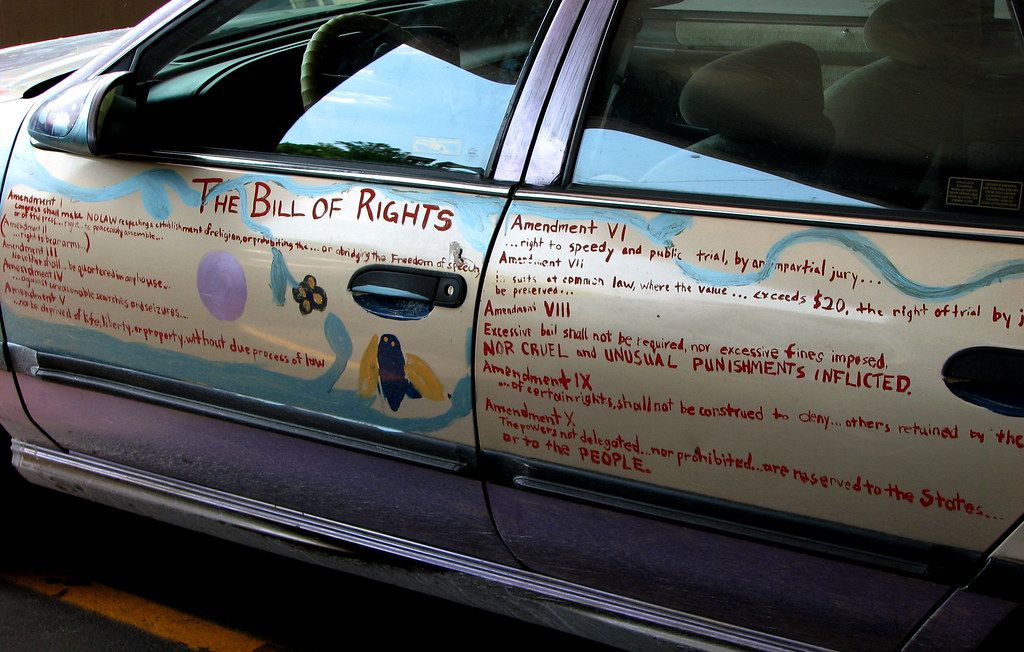 THE BILL OF RIGHTS
Amendment I
Congress shall make NO LAW respecting a establishment of religion, or prohibiting the... or abridging the Freedom of speech
or of the press... right to peaceably assemble...
(Amendment II
...right to bear arms...)
Amendment III
No soldier shall... be quartered in any house...
Amendment IV
...against unreasonable searches and seizures...
Amendment V
...no be deprived of life, liberty, or property, without due process of law
Amendment VI
...right to speedy and public trial, by an impartial jury...
Amendment VII
in suits at common law, where the value... exceeds $20, the right of trial by j
be preserved...
Amendment VIII
Excessive bail shall not be required, nor excessive fines imposed,
NOR CRUEL and UNUSUAL PUNISHMENTS INFLICTED.
Amendment IX
...of certain rights, shall not be construed to deny... others retained by the
Amendment X
The powers not delegated... nor prohibited... are reserved to the States...
or to the PEOPLE.